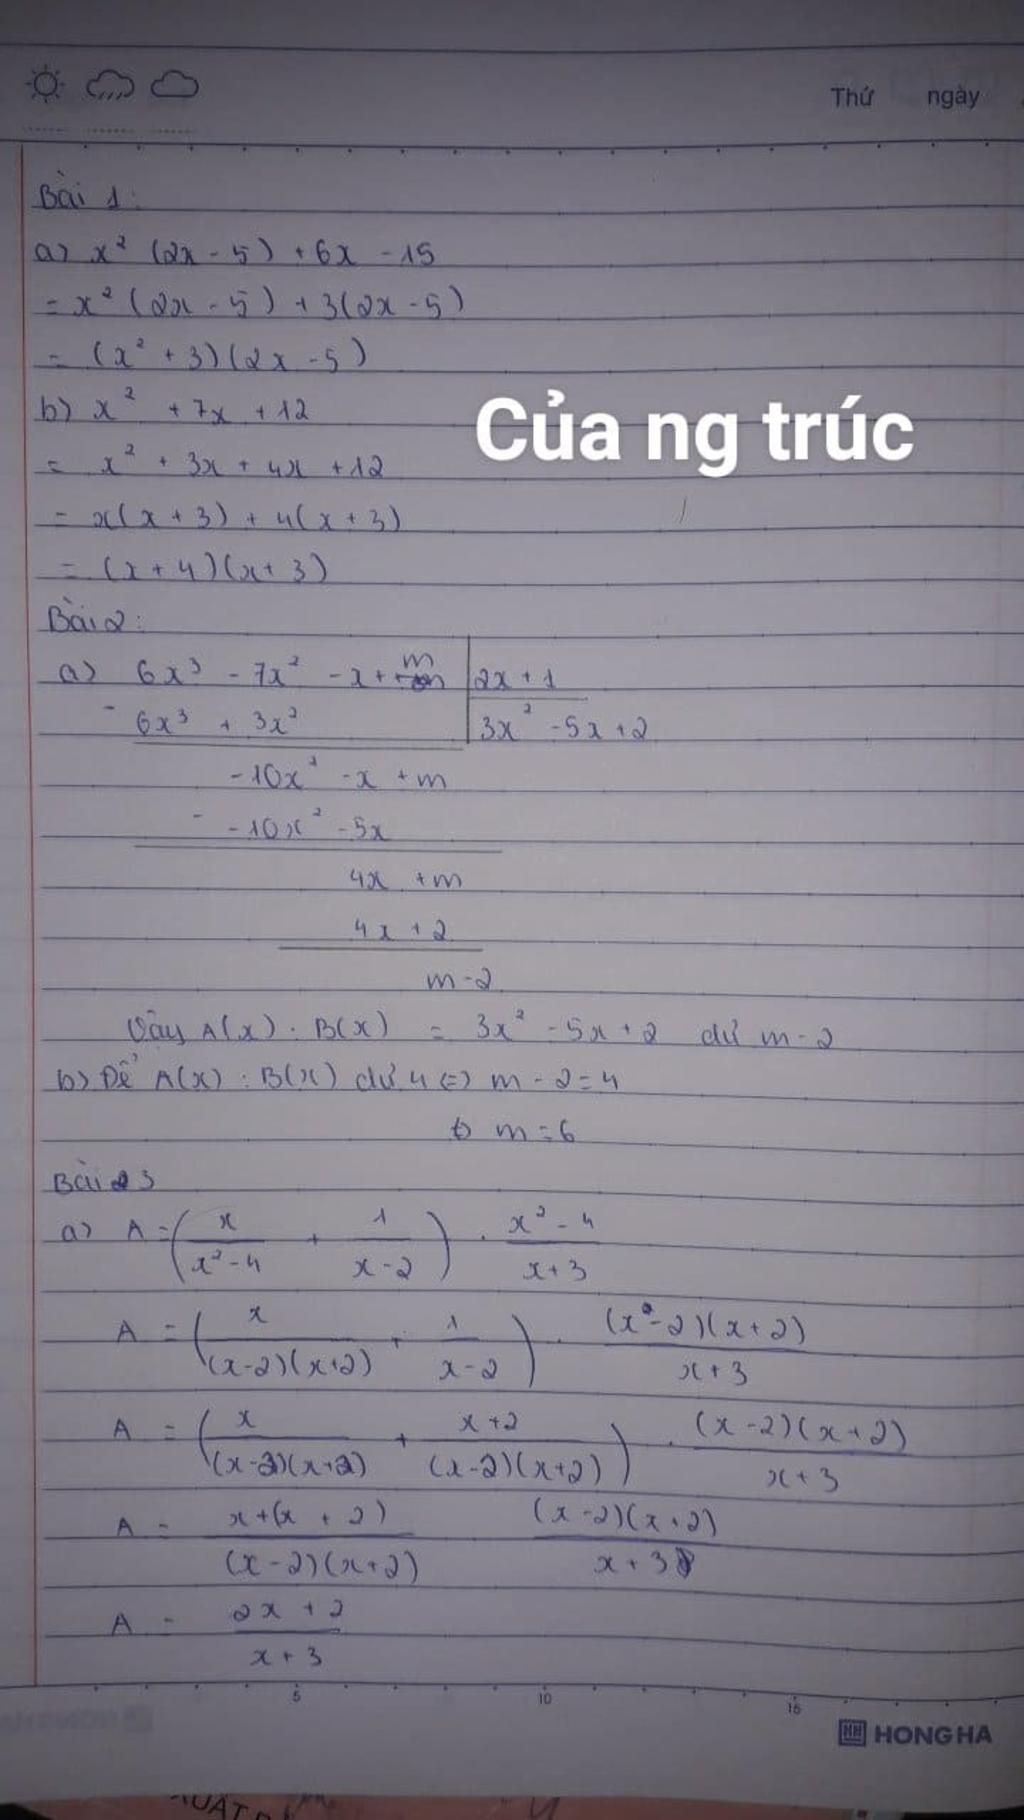 Thứ ngày
Bài 1:
a) x² (2x - 5) + 6x - 15
= x² (2x - 5) + 3(2x - 5)
= (x² + 3)(2x - 5)
b) x² + 7x + 12
Của ng trúc
= x² + 3x + 4x + 12
= x(x + 3) + 4(x + 3)
= (x + 4)(x + 3)
Bài 2:
a) 6x³ - 7x² - x + m | 2x + 1
- 6x³ + 3x² | 3x² - 5x + 2
-10x² - x + m
- -10x² - 5x
4x + m
4x + 2
m - 2
Vậy A(x) : B(x) = 3x² - 5x + 2 dư m - 2
b) Để A(x) : B(x) dư 4 <=> m - 2 = 4
m = 6
Bài 3
a) A = (x/(x² - 4) + 1/(x - 2)) . (x² - 4)/(x + 3)
A = (x/((x-2)(x+2)) + 1/(x-2)) . ((x-2)(x+2))/(x+3)
A = (x/((x-2)(x+2)) + (x+2)/((x-2)(x+2))) . ((x-2)(x+2))/(x+3)
A = (x+(x + 2))/((x-2)(x+2)) ((x-2)(x+2))/(x+3)
A = (2x + 2)/(x + 3)
5 10 15
HONG HA